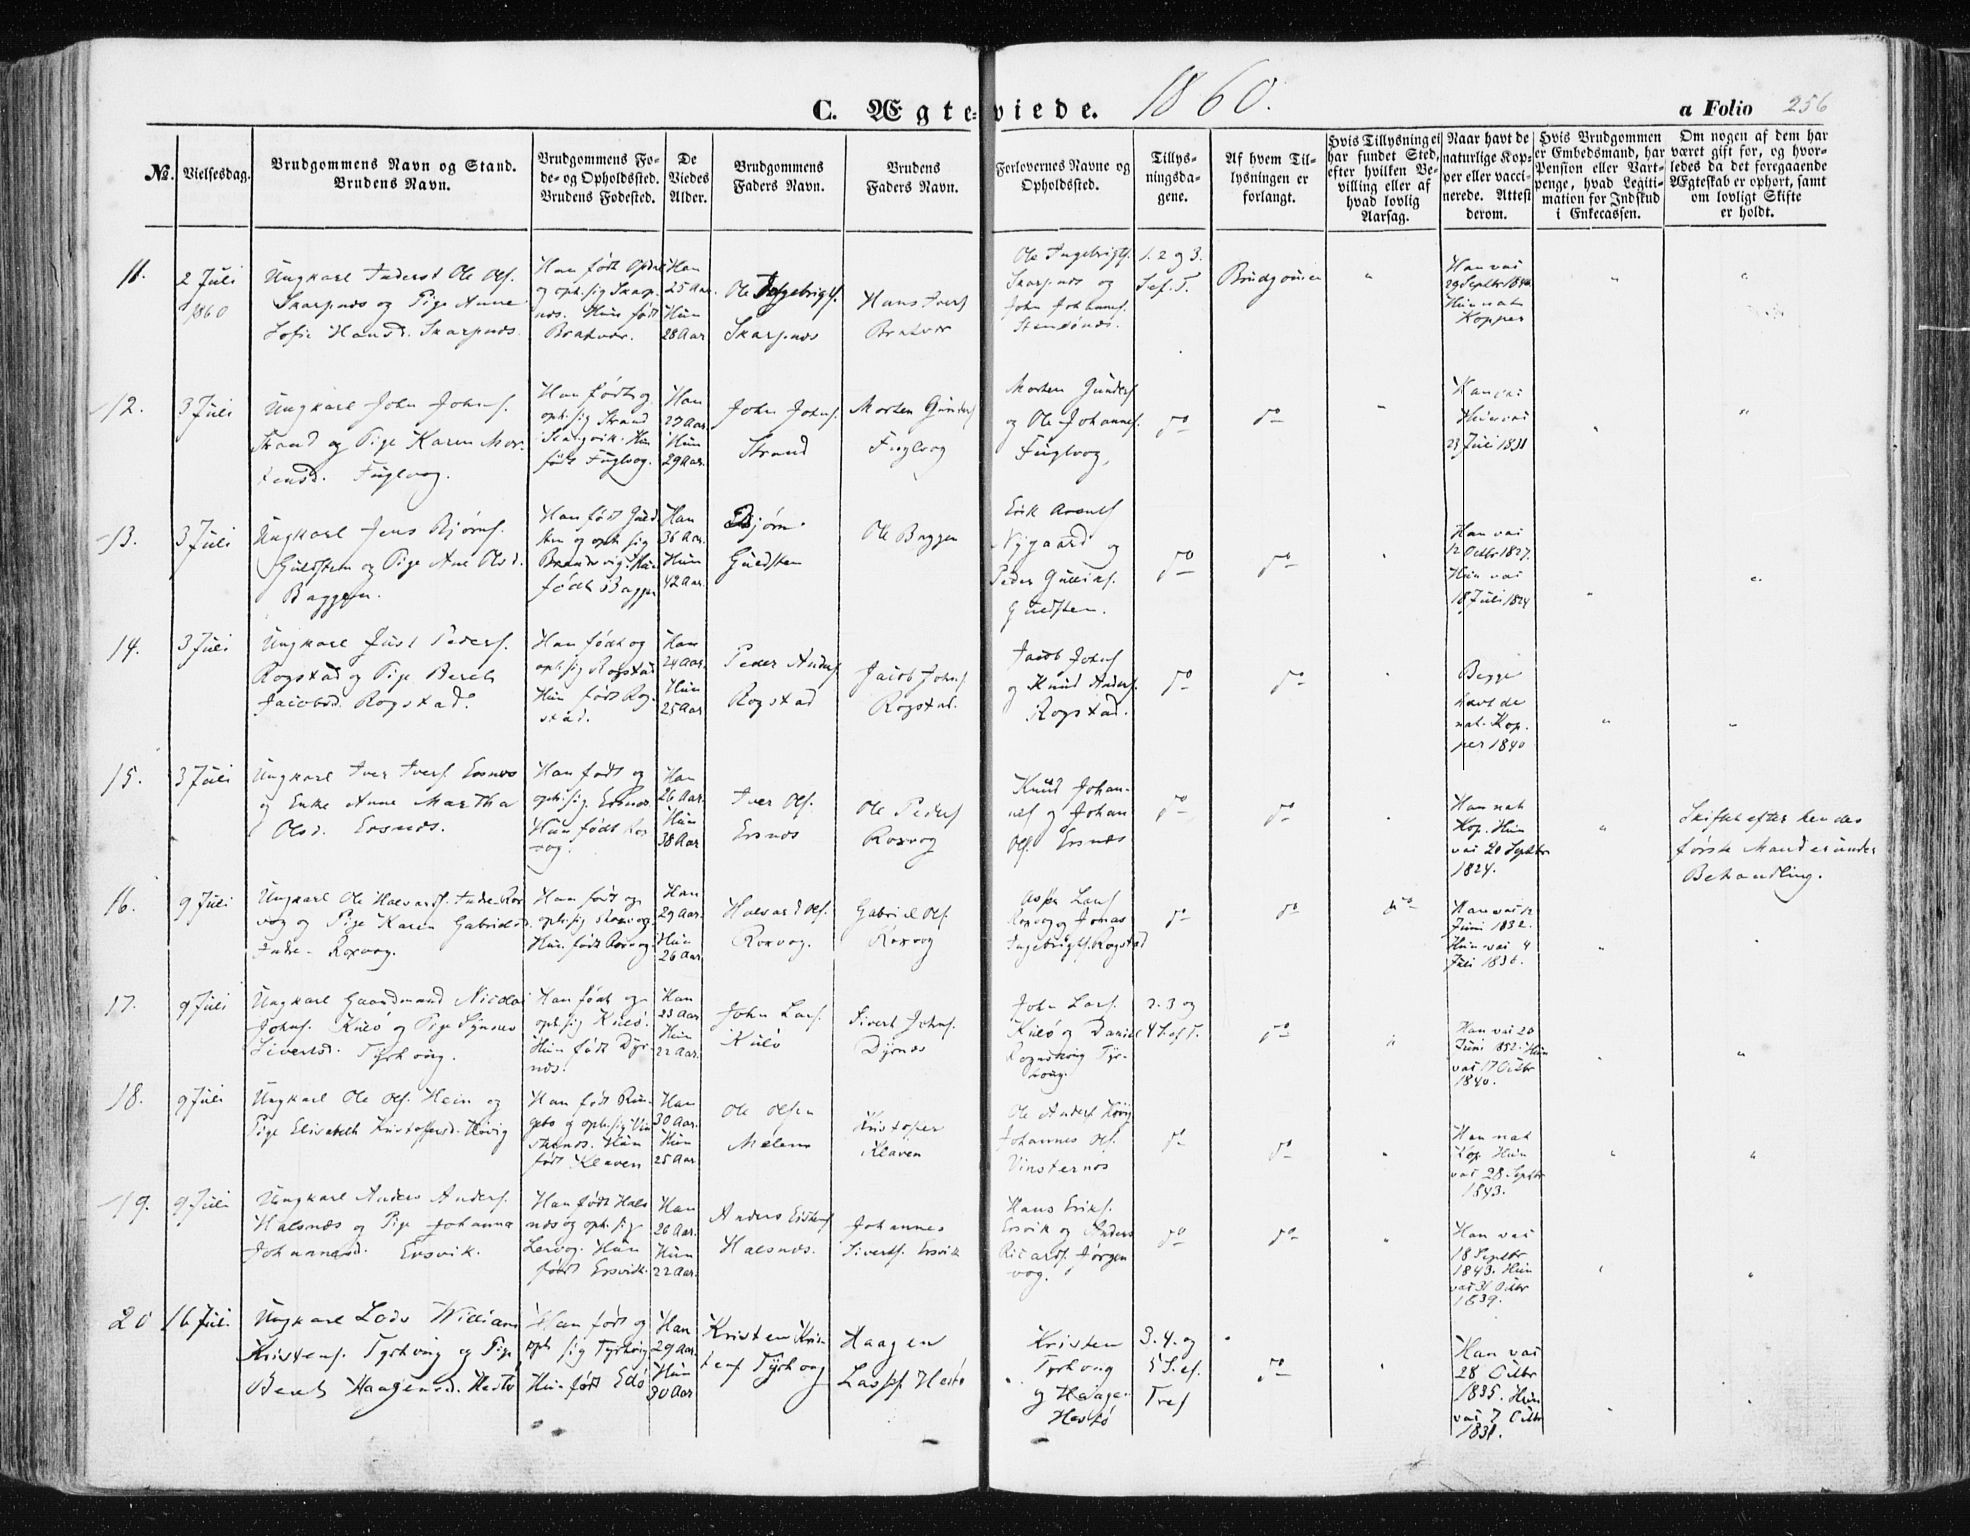 C. Ægteviede. 1860. a Folio 256
№.
Vielsesdag.
Brudgommens Navn og Stand.
Brudens Navn.
Brudgommens Fø-
de- og Opholdssted.
Brudens Fødested.
De
Viedes
Alder.
Brudgommens
Faders Navn.
Brudens
Faders Navn.
Forlovernes Navne og
Opholdssted.
Tillys-
ningsda-
gene.
Af hvem Til-
lysningen er
forlangt.
Hvis Tillysning ei
har fundet Sted,
efter hvilken Be-
villing eller af
hvad lovlig
Aarsag.
Naar havt de
naturlige Kop-
per eller vacci-
nerede. Attest
derom.
Hvis Brudgommen
er Embedsmand, har
Pension eller Vart-
penge, hvad Legiti-
mation for Indskud
i Enkecassen.
Om nogen af dem har
været gift før, og hvor-
ledes da det foregaaende
Ægteskab er ophørt, samt
om lovligt Skifte
er holdt.
11.
2 Juli
1860
Ungkarl Anderst Ole Ols.
Skarpnes og Pige Anne
Sofie Hansd. Skarpnes.
Han født
og oph. sig Skarp-
nes. Hun født
Bratvær.
Han
25 Aar.
Hun
28 Aar
Ole Ingebrigts.
Skarpnes
Hans Ivers
Bratvær
Ole Ingebrigts.
Skarpnes og
John Johans.
1. 2 og 3.
S. ef. T.
Brudgommen
Han vai
29 Septbr
Hun nat
Kopper
12.
3 Juli
Ungkarl John Johns.
Strand og Pige Karen Mor-
tensd. Fuglvog.
Han født og
oph. sig Strand
Hun
født Fuglvog.
Han
27 Aar.
Hun
29 Aar.
John Johns.
Strand
Morten Gunders
Fuglvog
Morten Gunders
og Ole Johannes.
Fuglvog,
do
do
Han vai
Hun vai
23 Juli 1831
13.
3 Juli
Ungkarl Jens Bjørns.
Guldsten og Pige Ane Olsd.
Baggen.
Han født Guld-
sten og oph. sig
Brandsvig. Hun
født Baggen
Han
36 Aar.
Hun
42 Aar.
Bjørn
Guldsten
Ole Baggen
Erik Arents
Nygaard og
Peder Gulliks.
Guldsten.
do
do
Han vai
12 Octbr 1827.
Hun vai
18 Juli 1824
14.
3 Juli
Ungkarl Just Peders.
Rogstad og Pige Bereth
Jacobsd. Rogstad.
Han født og
oph. sig Rogstad
Hun født Rog-
stad.
Han
24 Aar.
Hun
25 Aar
Peder Anders
Rogstad
Jacob Johns
Rogstad.
Jacob Johns
og Knud Anders.
Rogstad.
do
do
Begge
havt de
nat. Kop-
per 1840
15.
3 Juli
Ungkarl Iver Ivers. Ersnes
og Enke Anne Martha
Olsd. Ersnes.
Han født og
oph. sig. Ersnes
Hun født Rox-
vog.
Han
26 Aar.
Hun
38 Aar
Iver Ols.
Ersnes
Ole Peders
Roxvog
Knud Johan-
nes og Johan
Ols. Ersnes
do
do
Han nat
Kop. Hun
vai 20 Septbr
1824.
Skiftet efter hendes
første Mand er under
Behandling.
16.
9 Juli
Ungkarl Ole Halvards. Indre Rox-
vog og Pige Karen Gabrielsd.
Indre- Roxvog.
Han født og
oph. sig Roxvog.
Hun født Roxvog.
Han
29 Aar.
Hun
26 Aar.
Halvard Ols.
Roxvog.
Gabriel Ols.
Roxvog
Lars
Roxvog og Jonas
Ingebrigts. Rogstad
do
do
do
Han vai 12
Juni 1832.
Hun vai 4
Juli 1836.
17.
9 Juli
Ungkarl Gaardmand Nicolai
Johns. Kulø og Pige Synnev
Sivertsd. Tyrhoug.
Han født og
oph. sig Kulø.
Hun født Dyr-
nes.
Han
23 Aar
Hun
22 Aar.
John Lars.
Kulø
Sivert Johns.
Dyrnes
John Lars.
Kulø og Daniel
Tyr-
houg.
2. 3 og
4 S. ef T.
do
Han vai 20
Juni 1852. Hun
vai 17 Octbr
1840.
18.
9 Juli
Ungkarl Ole Ols. Hein og
Pige Elisabeth Kristoffersd. Høvig
Han født Rin-
gebo og oph. sig Vin-
sternes. Hun
født Klaven
Han
30 Aar.
Hun
25 Aar.
Ole Olsen
Melem
Kristoper
Klaven
Ole Anders Høvig
Johannes Ols.
Vinsternes
do
do
Han nat
Kop. Hun
vai 28. Septbr
1843.
19.
9 Juli
Ungkarl Anders Anders.
Halsnes og Pige Johanna
Johannesd. Ersvik.
Han født Hals-
nes og oph. sig
Lervog. Hun
født Ersvik.
Han
26 Aar.
Hun
22 Aar.
Anders
Halsnes.
Johannes
Siverts. Ersvik
Hans Eriks.
Ersvik og Anders
Ricards. Jørgen-
vog.
do
do
Han vai
18 Septbr
1843. Hun
vai 31 Octbr
1839.
20
16 Juli
Ungkarl Lods William
Kristens. Tyrhoug og Pige
Bereth Haagensd. Hestø
Han født og
oph sig Tyrhoug
Hun født Edø
Han
29 Aar.
Hun
30 Aar
Kristen Kris-
tens Tyrhoug
Haagen
Hestø
Kristen
Tyrhoug
og Haagen
Hestø
3. 4. og
5 S. ef.
Tref
do
Han vai
28 Octbr
1835. Hun
vai 7 Octbr
1831.